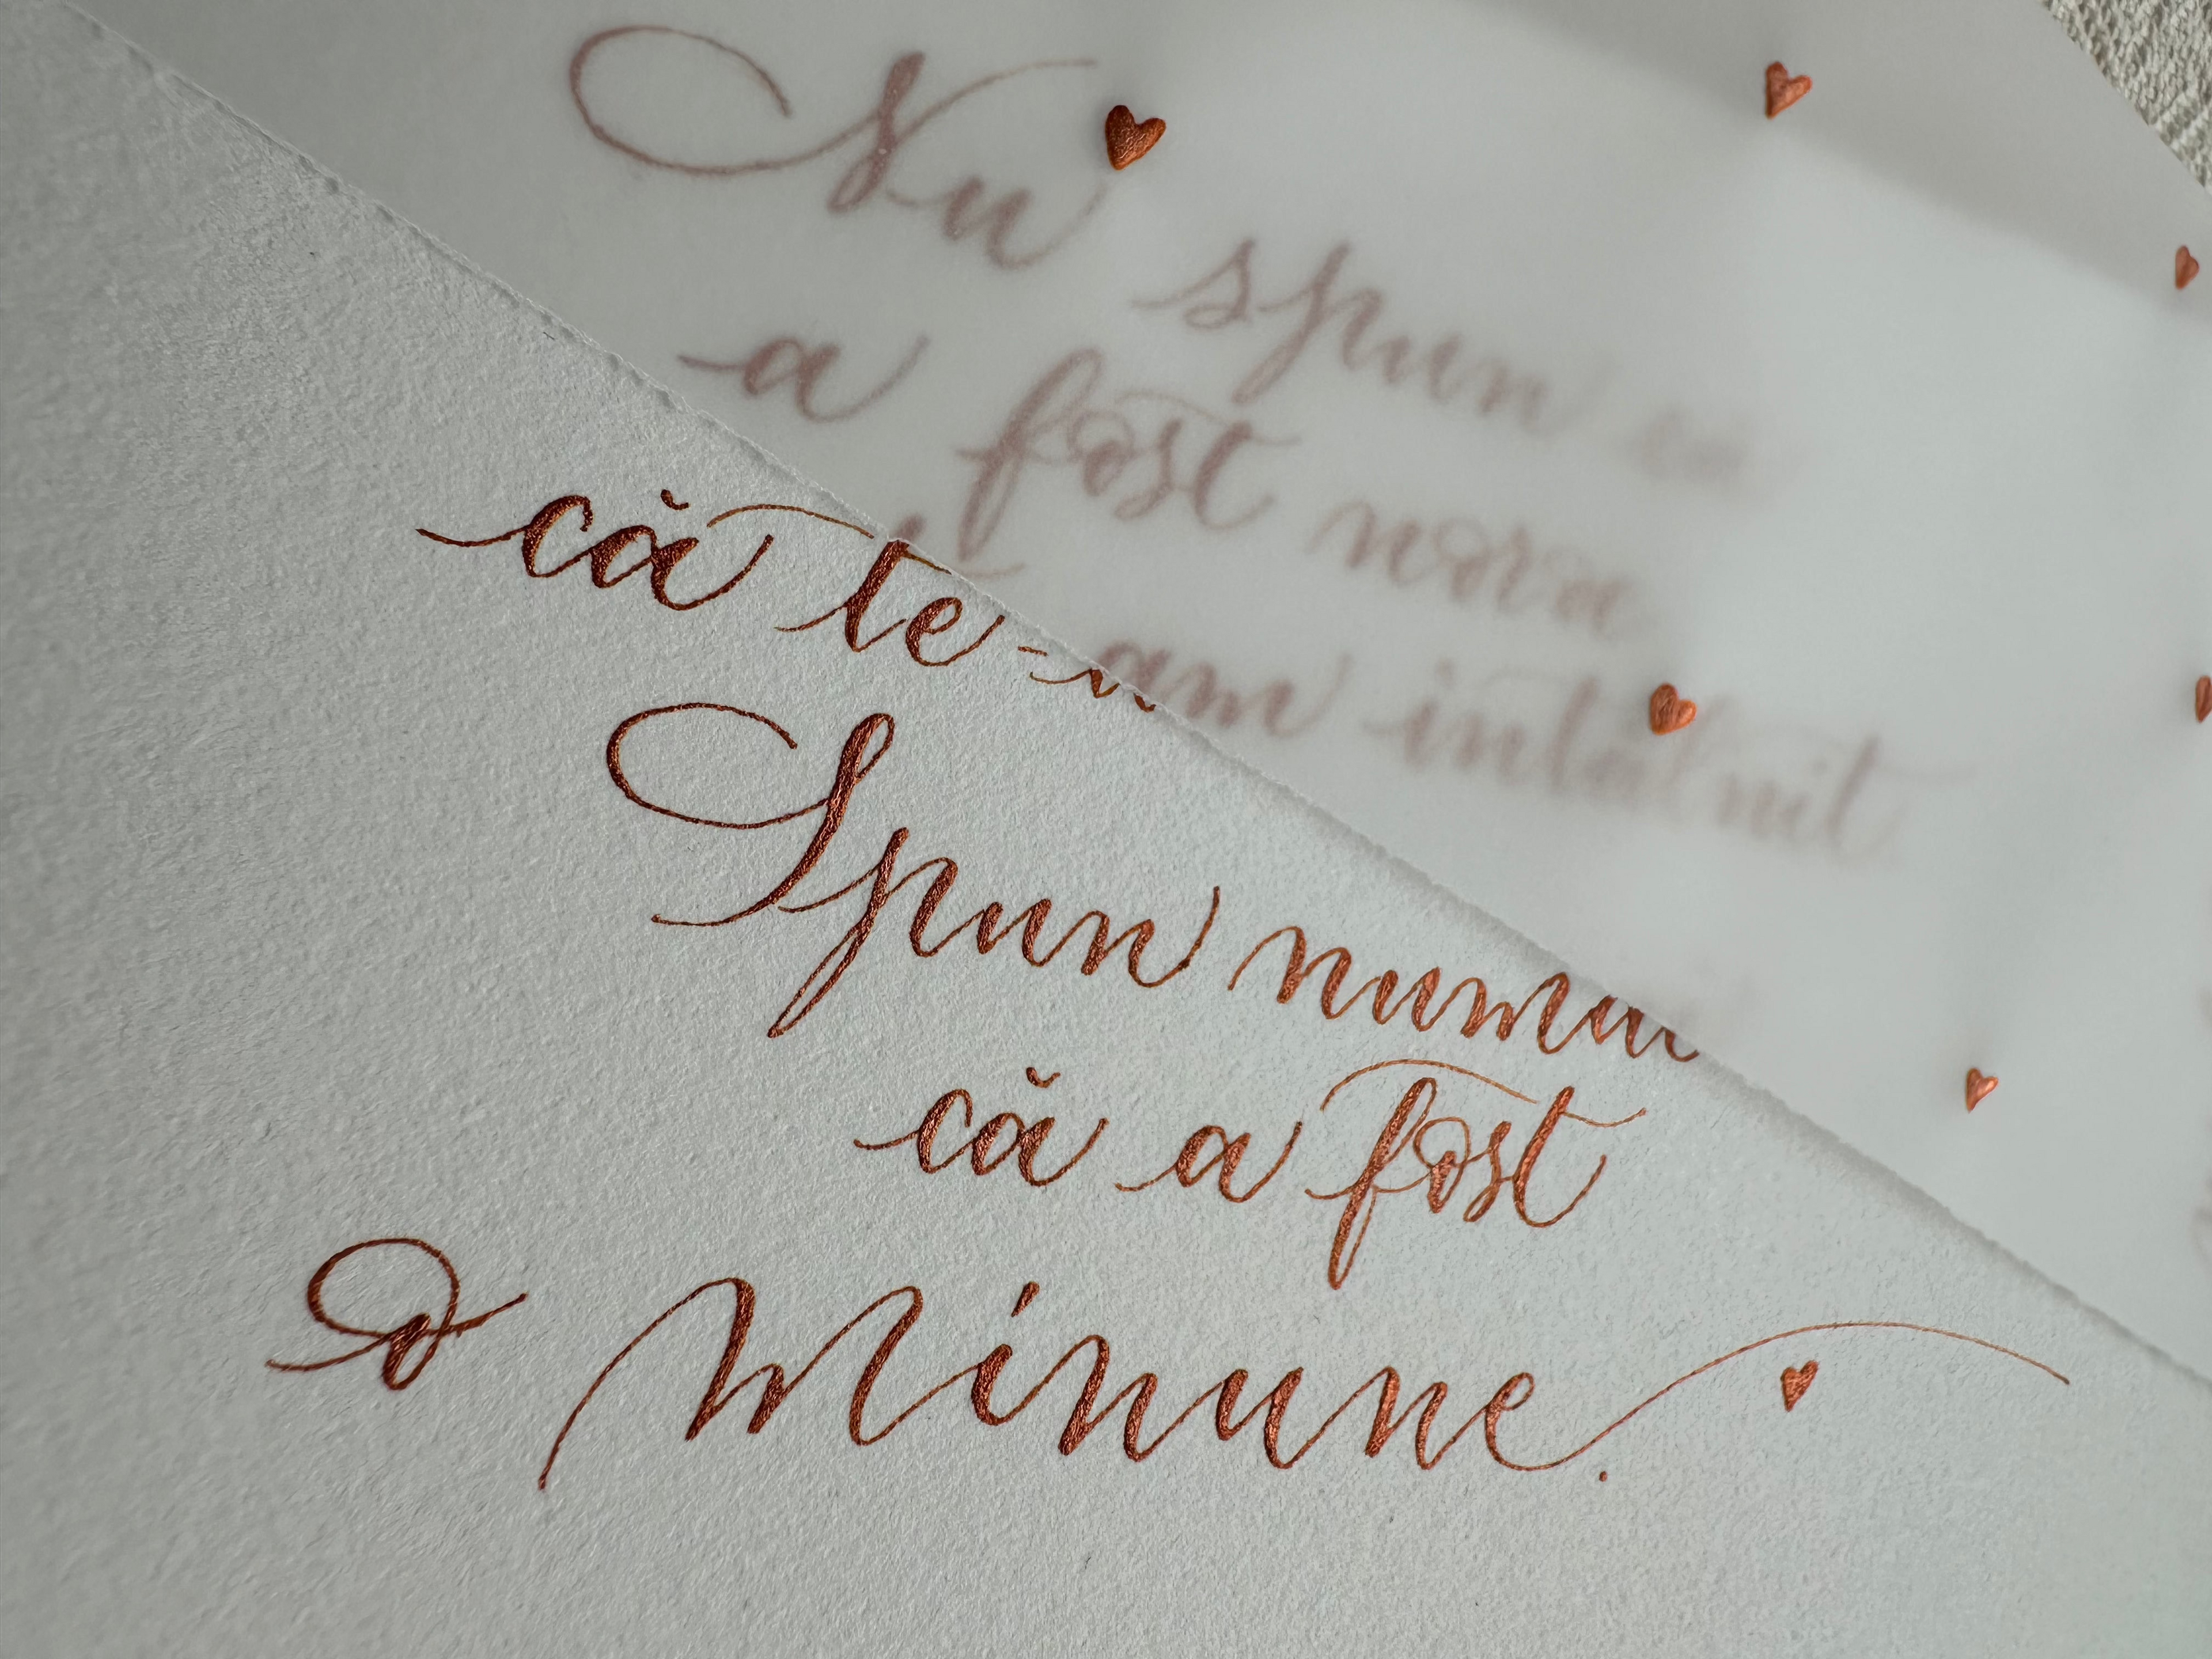 Nu spun că
a fost noroc
că te-am întâlnit
Spun numai
că a fost
o Minune.